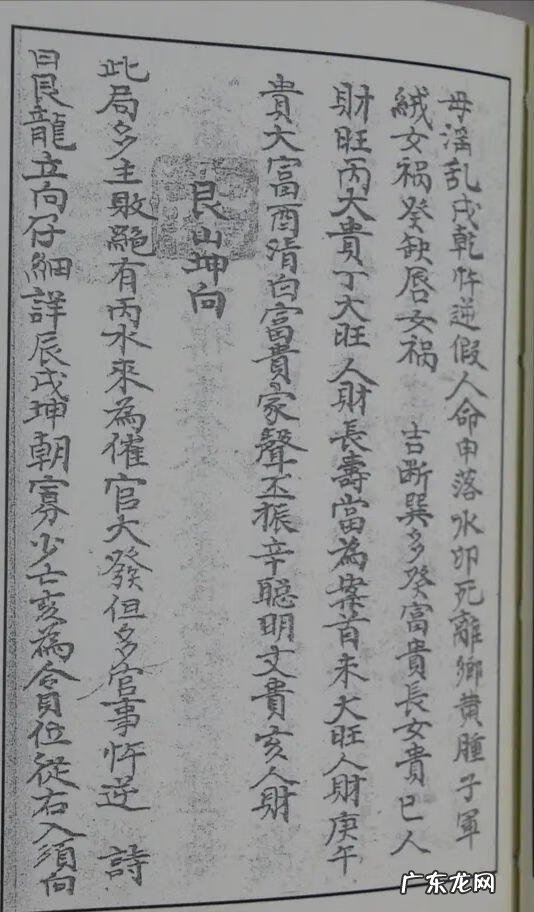 毋淫乱戌乾忤逆假人命申落水卯死離鄉黄腫子軍
絨女祸癸缺唇女祸 吉断巽多發富貴長女貴巳人
財旺丙大貴丁大旺人財長壽當為案首未大旺人財庚午
貴大富酉清白富貴家聲丕振辛聰明文貴亥人財
艮山坤向
此局多主敗絕有丙水來為催官大發但多官事忤逆 詩
曰艮龍立向仔細詳辰戌坤朝寡少亡亥為貪位從右入須向
广东龙网